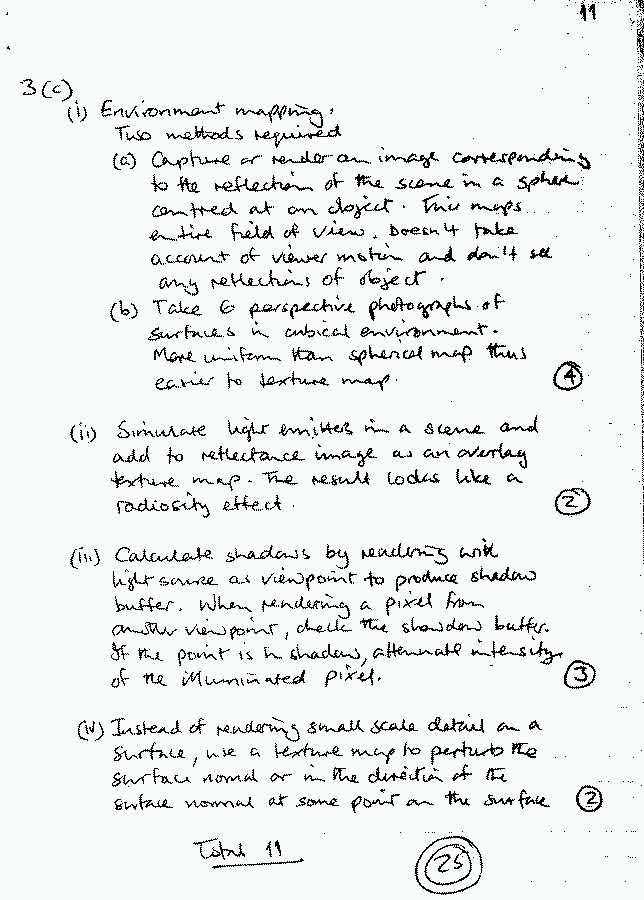 11
3(c)
(i) Environment mapping.
Two methods required
(a) Capture or render an image corresponding
to the reflection of the scene in a sphere
centred at an object. This maps
entire field of view. Doesn't take
account of viewer motion and don't see
any reflections of object.
(b) Take 6 perspective photographs of
surfaces in cubical environment.
More uniform than spherical map thus
easier to texture map.
4
(ii) Simulate light emitters in a scene and
add to reflectance image as an overlay
texture map. The result looks like a
radiosity effect.
2
(iii) Calculate shadows by rendering with
light source as viewpoint to produce shadow
buffer. When rendering a pixel from
another viewpoint, check the showdow buffer.
If the point is in shadow, attenuate intensity
of the illuminated pixel.
3
(iv) Instead of rendering small scale detail on a
surface, use a texture map to perturb the
surface normal or in the direction of the
surface normal at some point on the surface
2
Total 11
25